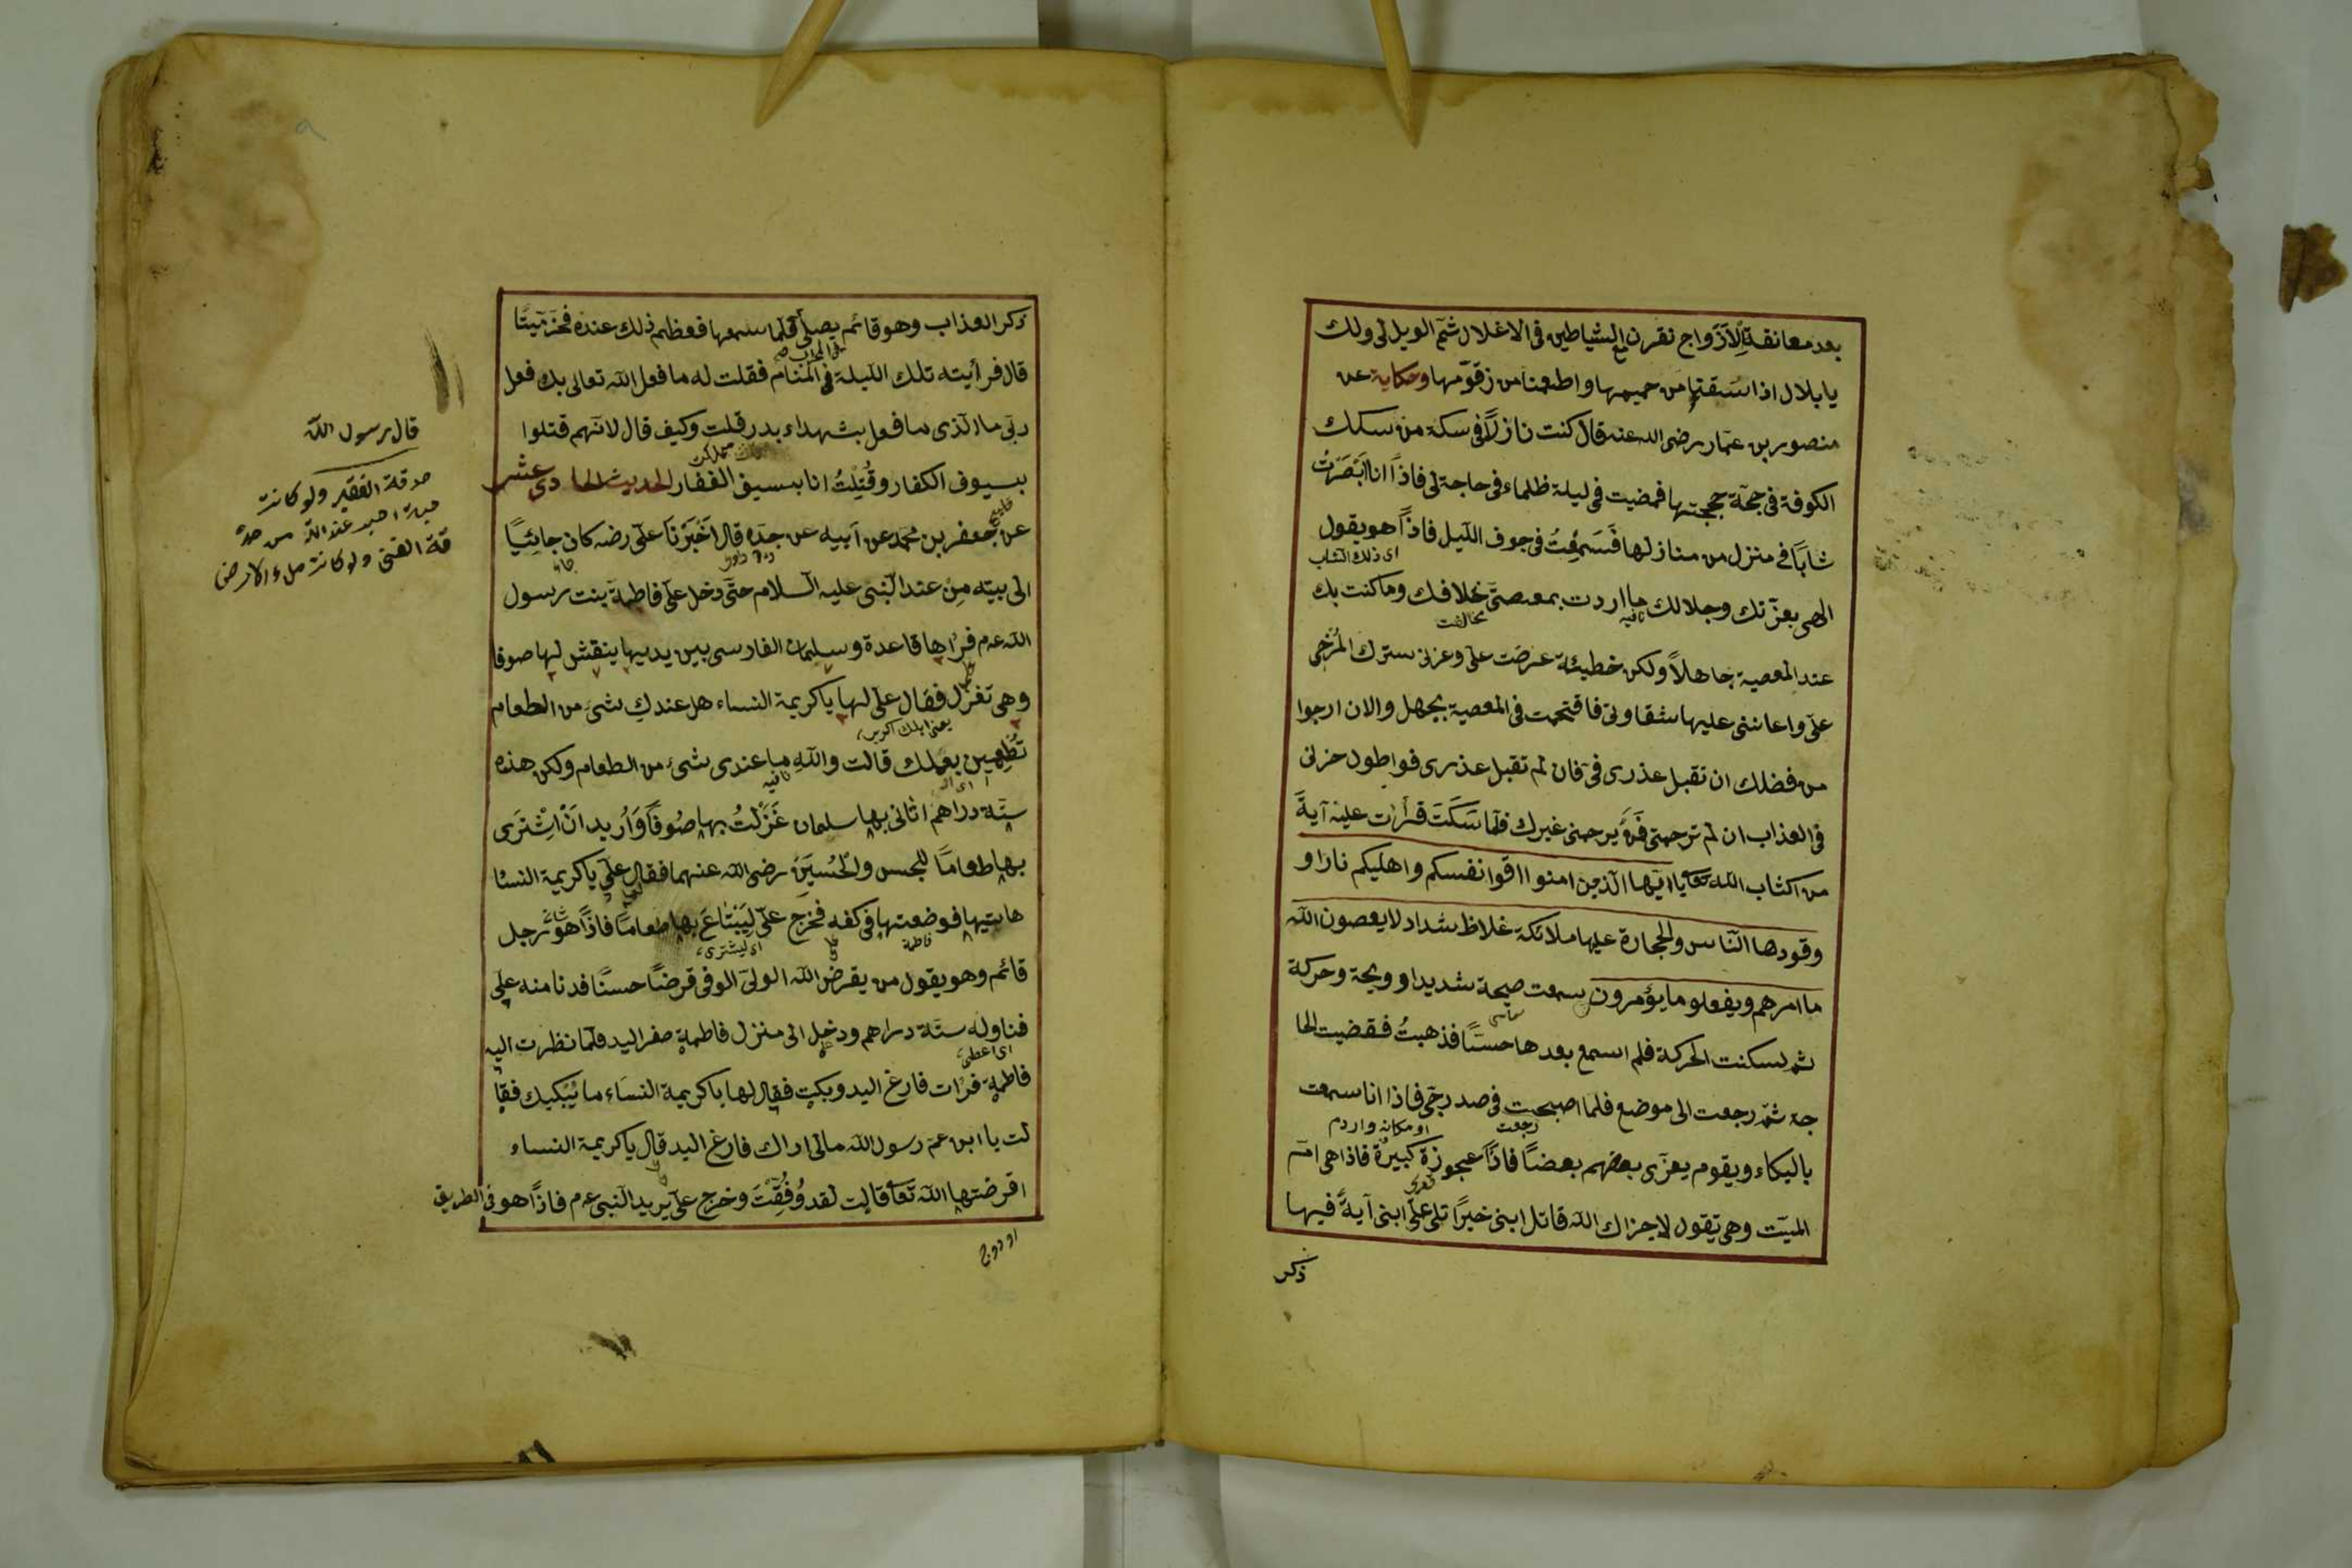 بعد معانقة الازواج نقرن مع الشياطين فى الاغلال ثم الويل لى ولك
يا بلال اذا سقتنا من حميمها واطعمنا من زقومها وحكاية عن
منصور بن عمار رضى الله عنه قال كنت نازلا فى سكة من سكك
الكوفة فى حجة حججتها فمضيت فى ليلة ظلماء فى حاجة لى فاذا انا ابصرت
شابا فى منزل من منازلها فسمعت فى جوف الليل فاذا هو يقول
اى ذلك الشاب
الهى بعزتك وجلالك ما اردت بمعصيتى خلافك وما كنت بك
نافيه مخالفت
عند المعصية جاهلا ولكن خطيئة عرضت على وغرنى سترك المرخى
على واعاننى عليها شقاوتى فاقتحمت فى المعصية بجهل والان ارجوا
من فضلك ان تقبل عذرى فى فان لم تقبل عذرى فواطول حزنى
فى العذاب ان لم ترحمنى فمن يرحمنى غيرك فلما سكت قرأت عليه آية
من اكتاب الله تعا يا ايها الذين امنوا اقوا انفسكم واهليكم نارا و
وقودها الناس والحجارة عليها ملائكة غلاظ شداد لا يعصون الله
ما امرهم ويفعلو ما يؤمرون سمعت صيحة شديدا وويحة وحركة
ثم سكنت الحركة فلم اسمع بعدها حسا فذهبت فقضيت الحا
جة ثم رجعت الى موضع فلما اصبحت فى صدر رجى فاذا انا سمعت
رجعت او مكانه واردم
بالبكاء ويقوم يعزى بعضهم بعضا فاذا عجوزة كبيرة فاذا هى ام
الميت وهى تقول لا جزاك الله قاتل ابنى خيرا تلى على ابنى آية فيها
ذكر
ذكر العذاب وهو قائم يصلى فلما سمعها فعظم ذلك عنده فخر ميتا
فى المحراب صح
قال فرأيته تلك الليلة فى المنام فقلت له ما فعل الله تعالى بك فعل
ربى ما الذى ما فعل بشهداء بدر قلت وكيف قال لانهم قتلوا
بسيوف الكفار وقتلت انا بسيف الغفار الحديث الحادى عشر
عن جعفر بن محمد عن ابيه عن جده قال اخبرنا على رضه كان جائيا
الى بيته من عند النبى عليه السلام حتى دخل على فاطمة بنت رسول
الله عم فرأها قاعدة وسلمان الفارسى بين يديها ينقش لها صوفا
وهى تغزل فقال على لها يا كريمة النساء هل عندك شئ من الطعام
تطعمين بعلك قالت والله ما عندى شئ من الطعام ولكن هذه
نافيه
ستة دراهم اتانى بها سلمان غزلت بها صوفا واريد ان اشترى
بها طعاما للحسن والحسين رضى الله عنهما فقال على يا كريمة النسا
هاتيها فوضعتها فى كفه فخرج على ليبتاع بها طعاما فاذا هو برجل
فاطمة اى ليشترى
قائم وهو يقول من يقرض الله الولى الوفى قرضا حسنا فدنا منه على
فناوله ستة دراهم ودخل الى منزل فاطمة صفر اليد فلما نظرت اليه
اى اعطى
فاطمة فرات فارغ اليد وبكت فقال لها يا كريمة النساء ما يبكيك فقا
لت يا ابن عم رسول الله مالى اراك فارغ اليد قال يا كريمة النساء
اقرضتها الله تعا قالت لقد وفقت وخرج على يريد النبى عم فاذا هو فى الطريق
قال رسول الله
صدقة الفقير ولو كانت
حبة احب عند الله من صد
قة الغنى ولو كانت ملء الارض